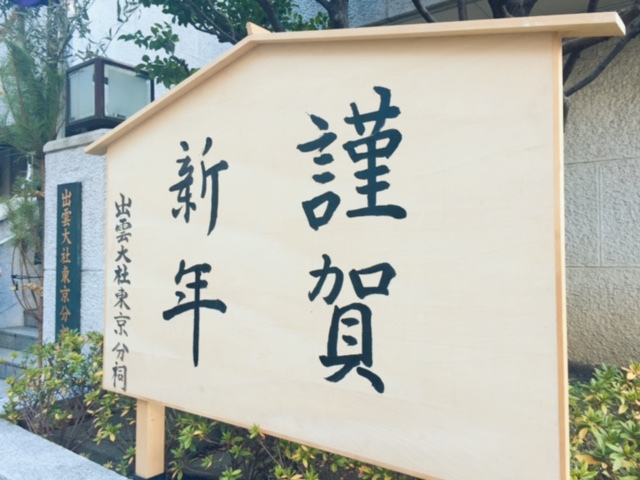 謹賀
新年
出雲大社東京分祠
出雲大社東京分祠